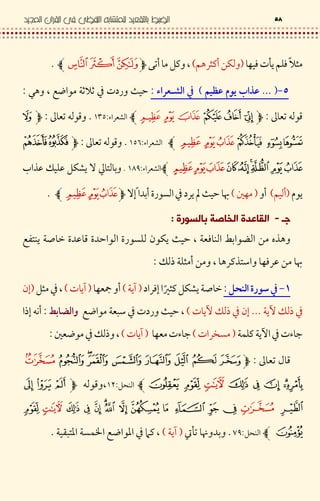 ٥٨ الضبط بالتقعيد للمتشابه اللفظي في القرآن المجيد
مثلاً فلم يأت فيها (ولكن أكثرهم) ، وكل ما أتى ﴿ وَلَٰكِنَّ أَكْثَرَ ٱلنَّاسِ ﴾ .
٥-( ... عذاب يوم عظيم ) في الشعراء : حيث وردت في ثلاثة مواضع ، وهي :
قوله تعالى : ﴿ إِنِّيٓ أَخَافُ عَلَيْكُمْ عَذَابَ يَوْمٍ عَظِيمٍ ﴾ الشعراء:١٣٥ . وقوله تعالى : ﴿ وَلَا
تَمَسُّوهَا بِسُوٓءٍ فَيَأْخُذَكُمْ عَذَابُ يَوْمٍ عَظِيمٍ ﴾ الشعراء:١٥٦ . وقوله تعالى : ﴿ فَكَذَّبُوهُ فَأَخَذَهُمْ
عَذَابُ يَوْمِ ٱلظُّلَّةِ إِنَّهُۥ كَانَ عَذَابَ يَوْمٍ عَظِيمٍ ﴾ الشعراء:١٨٩ . وبالتالي لا يشكل عليك عذاب
يوم (أليم) أو ( مهين ) بها حيث لم يرد في السورة أبداً إلا ﴿ عَذَابُ يَوْمٍ عَظِيمٍ ﴾ .
جـ - القاعدة الخاصة بالسورة :
وهذه من الضوابط النافعة ، حيث يكون للسورة الواحدة قاعدة خاصة ينتفع
بها من عرفها واستذكرها ، ومن أمثلة ذلك :
١- في سورة النحل : خاصة يشكل كثيرًا إفراد ( آية ) أو جمعها ( آيات ) ، في مثل (إن
في ذلك لآية ... إن في ذلك لآيات ) ، حيث وردت في سبعة مواضع والضابط : أنه إذا
جاءت في الآية كلمة ( مسخرات ) جاءت معها ( آيات ) ، وذلك في موضعين :
قال تعالى : ﴿ وَسَخَّرَ لَكُمُ ٱلَّيْلَ وَٱلنَّهَارَ وَٱلشَّمْسَ وَٱلْقَمَرَ وَٱلنُّجُومُ مُسَخَّرَٰتٌۢ
بِأَمْرِهِۦٓ إِنَّ فِى ذَٰلِكَ لَءَايَٰتٍ لِّقَوْمٍ يَعْقِلُونَ ﴾ النحل:١٢،وقوله ﴿ أَلَمْ يَرَوْا۟ إِلَى
ٱلطَّيْرِ مُسَخَّرَٰتٍ فِى جَوِّ ٱلسَّمَآءِ مَا يُمْسِكُهُنَّ إِلَّا ٱللَّهُ إِنَّ فِى ذَٰلِكَ لَءَايَٰتٍ لِّقَوْمٍ
يُؤْمِنُونَ ﴾ النحل:٧٩ . وبدونها تأتي ( آية ) ، كما في المواضع الخمسة المتبقية .